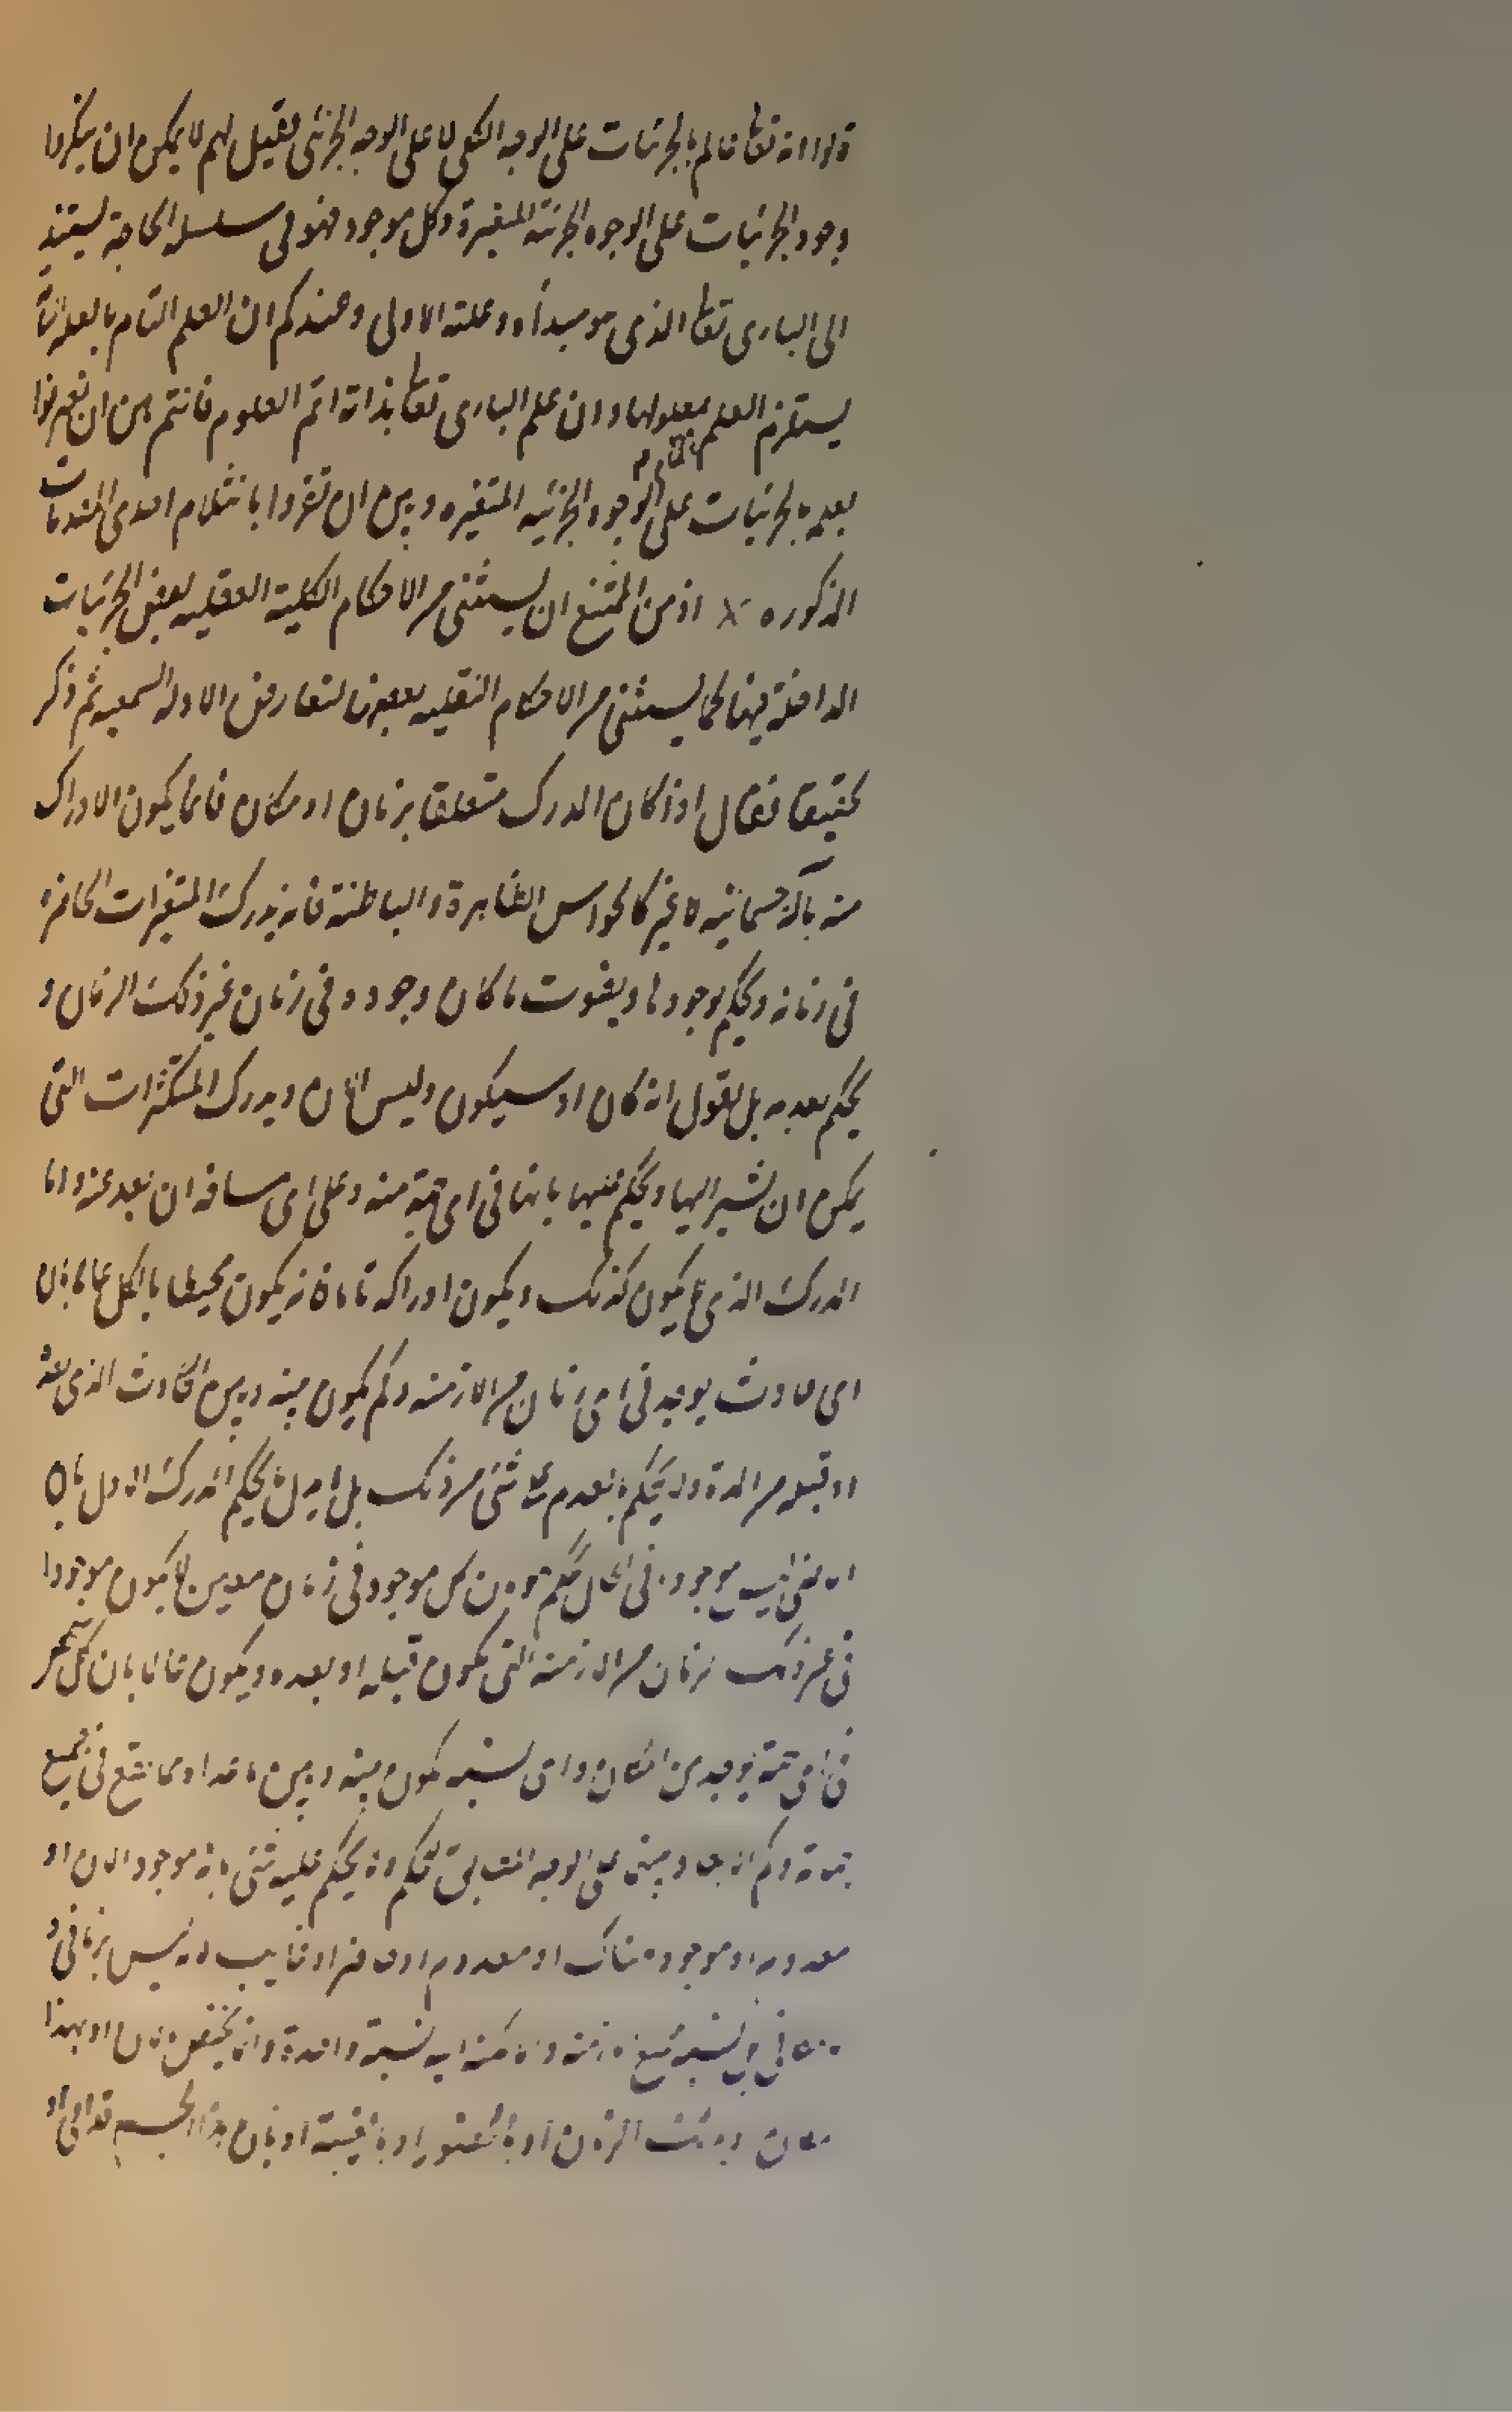 قالوا انه تعا عالم بالجزئيات على الوجه الكلى لا على الوجه الجزئى فقيل لهم لا يمكن ان ينكروا
وجود الجزئيات على الوجوه الجزئية المتغيرة وكل موجود فهو فى سلسله الحاجة يستند
الى البارى تعا الذى هو مبدأه وعلته الاولى وعندكم ان العلم التام بالعلة التامة
يستلزم العلم بمعلولها وان علم البارى تعا بذاته اتم العلوم فانتم بين ان تعترفوا
بعلمه بالجزئيات على الوجوه الجزئيه المتغيره وبين ان تقروا بانثلام احدى المقدمات
المذكوره × اذ من الممتنع ان يستثنى من الاحكام الكلية العقليه بعض الجزئيات
الداخلة فيها كما يستثنى من الاحكام النقليه بعضها لتعارض الادلة السمعيه ثم ذكر
تحقيقا فقال اذا كان المدرك متعلقا بزمان او مكان فانما يكون الادراك
منه بآلة جسمانيه لا غير كالحواس الظاهرة والباطنة فانه يدرك المتغيرات الحاضرة
فى زمانه ويحكم بوجودها ويفوت ما كان وجوده فى زمان غير ذلك الزمان و
يحكم بعدمه بل يقول انه كان او سيكون وليس الآن ويدرك المتكثرات التى
يمكن ان يشير اليها ويحكم عليها بانها فى اى جهة منه وعلى اى مسافه ان بعد عنه واما
المدرك الذى لا يكون كذلك ويكون ادراكه تاما فانه يكون محيطا بالكل عالما بان
اى حادث يوجد فى اى زمان من الازمنه وكم يكون بينه وبين الحادث الذى بعده
او قبله من المدة ولا يحكم بالعدم على شئ من ذلك بل بدل ما يحكم المدرك الاول بان
الماضى ليس موجودا فى الحال يحكم هو بان كل موجود فى زمان معين لا يكون موجودا
فى غير ذلك الزمان من الازمنه التى يكون قبله او بعده ويكون عالما بان كل شخص
فى اى جهة يوجد من المكان واى نسبه يكون بينه وبين ما عداه مما يقع فى جميع
جهاته وكم الابعاد بينهما على الوجه المطابق للحكم ولا يحكم على شئ بانه موجود الان او
معدوم او موجود هناك او معدوم او حاضر او غايب لانه ليس بزمانى و
لا مكانى بل نسبه جميع الازمنه والامكنه اليه نسبة واحدة وانما يختص بالان او بهذا
المكان او بذلك الزمان او بالحضور او بالغيبة او بان هذا الجسم قدامى او